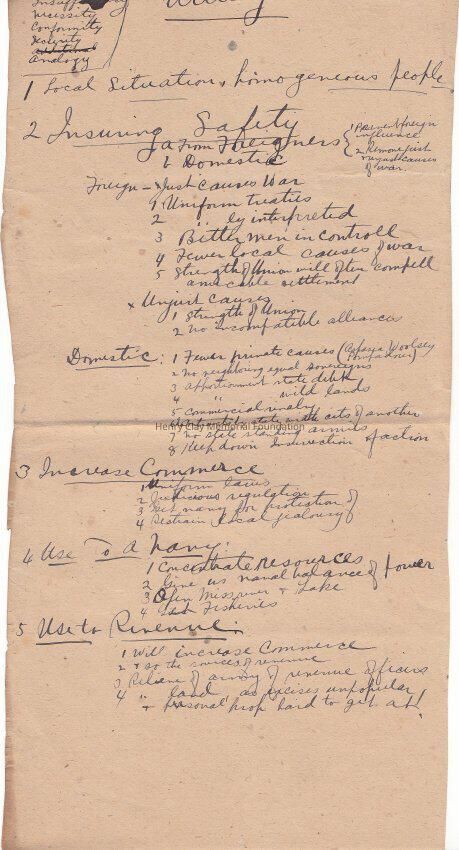 Necessity
Conformity
Security
Additional
Analogy
Utility
1 Local Situation, homogeneous people
2 Insuring Safety
a From Foreigners
b Domestic
1 Prevent foreign
influence
2 Remove just
& unjust causes
of war.
Foreign - x Just Causes War
1 Uniform treaties
2 " ly interpreted
3 Better men in controll
4 Fewer local causes of war
5 Strength of Union will often compell
amicable settlement
x Unjust causes
1 Strength of Union
2 no incompatible alliances
Domestic: 1 Fewer private causes (Aspasia Woolsey
Pompadour)
2 No neighboring equal sovereigns
3 apportionment state debt
4 " wild lands
5 Commercial rivalry
state with cits. of another
Henry Clay Memorial Foundation
7 no state standing armies
8 Keep down Insurrection & faction
3 Increase Commerce
1 Uniform laws
2 Judicious regulation
3 navy for protection of
4 Restrain local jealousy
4 Use To a Navy.
1 Concentrate resources
2 Give us naval balance of power
3 Open Missouri & Lake
4 Fisheries
5 Use to Revenue:
1 Will increase Commerce
2 & so the sources of revenue
3 Relieve of army of revenue officers
4 " land as excises unpopular
& personal prop hard to get at!